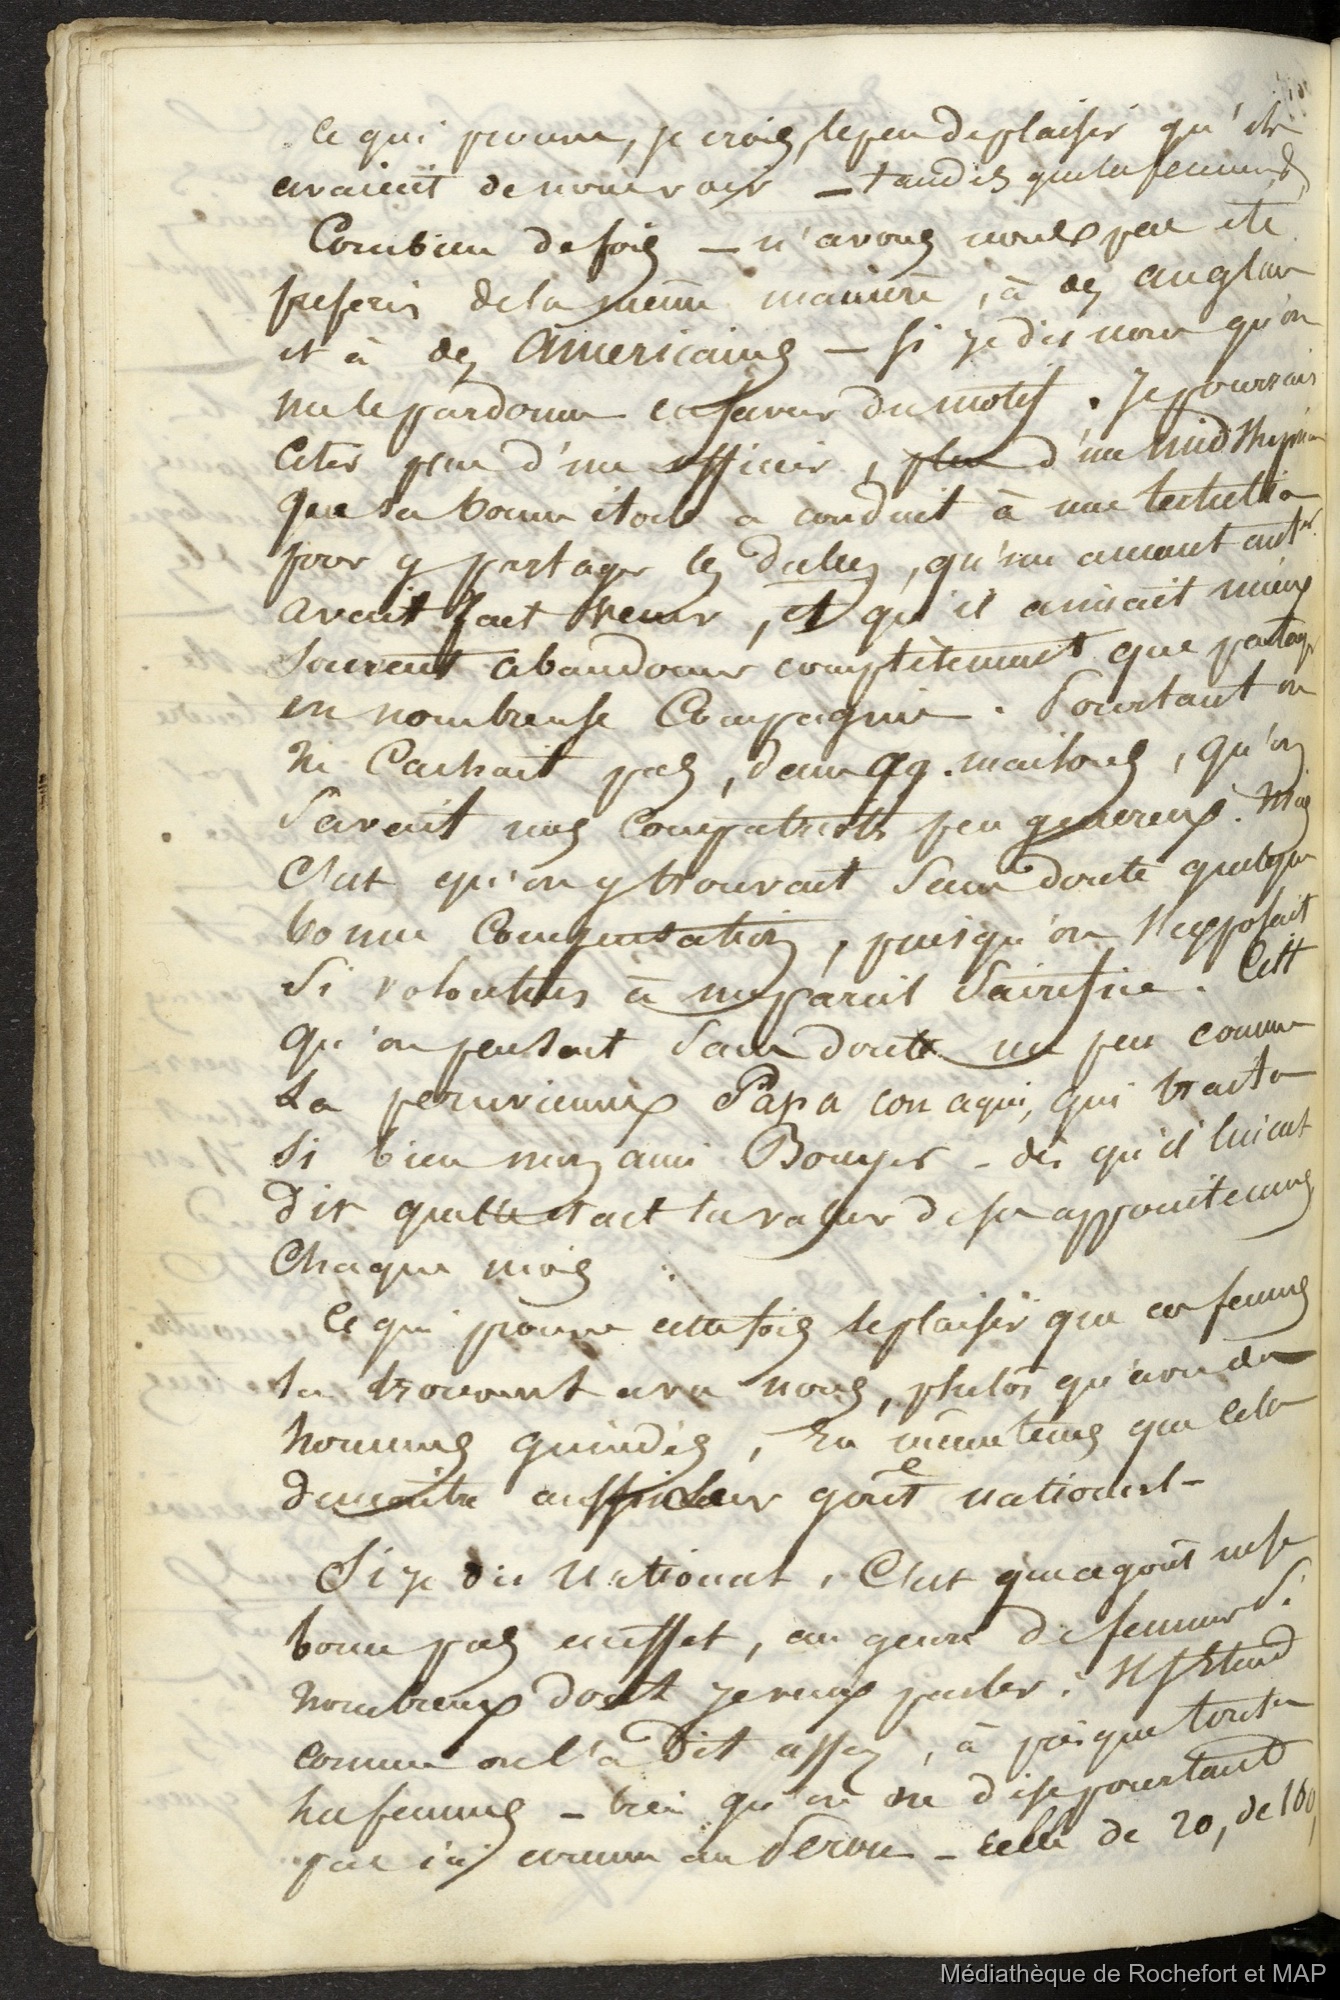 Ce qui prouve, je crois, le peu de plaisir qu'ils
avaient de nous voir – tandis que les femmes
Combien de fois – n'avons nous pas été
préférés de la même manière, à des anglais
et à des Américains – Si je dis nous qu'on
me le pardonne en faveur du motif. Je pourrais
citer plus d'un officier, plus d'un midshipman
que sa bonne étoile a conduit à une tertulia
pour y partager les dulces, qu'un amant
avait fait venir, et qu'il aimait mieux
souvent abandonner complètement que partager
en nombreuse Compagnie. Pourtant on
ne Cachait pas, dans qq. maisons, qu'on
savait nos Compatriotes peu généreux. Mais
C'est qu'on y trouvait sans doute quelque
bonne Compensation, puisqu'on s'exposait
si volontiers à un pareil Sacrifice. C'est
qu'on pensait sans doute un peu comme
la peruvienne Papa con aqui, qui traita
si bien mon ami Bouyer – dès qu'il lui eut
dit quelle était la valeur de ses appointemens
Chaque mois
Ce qui prouve cette fois le plaisir que ces femmes
trouvent avec nous, plutôt qu'avec des
hommes guindés, en même tems que cela
démontre aussi leur goût national –
Si je dis National, C'est que ce goût ne se
borne pas en effet, au genre de femmes si
nombreux dont je veux parler. Il s'étend
comme on l'a dit assez, à presque toutes
les femmes – bien qu'on ne dise pourtant
pas ici comme au Pérou – celle de 20, de 100,
Médiathèque de Rochefort et MAP